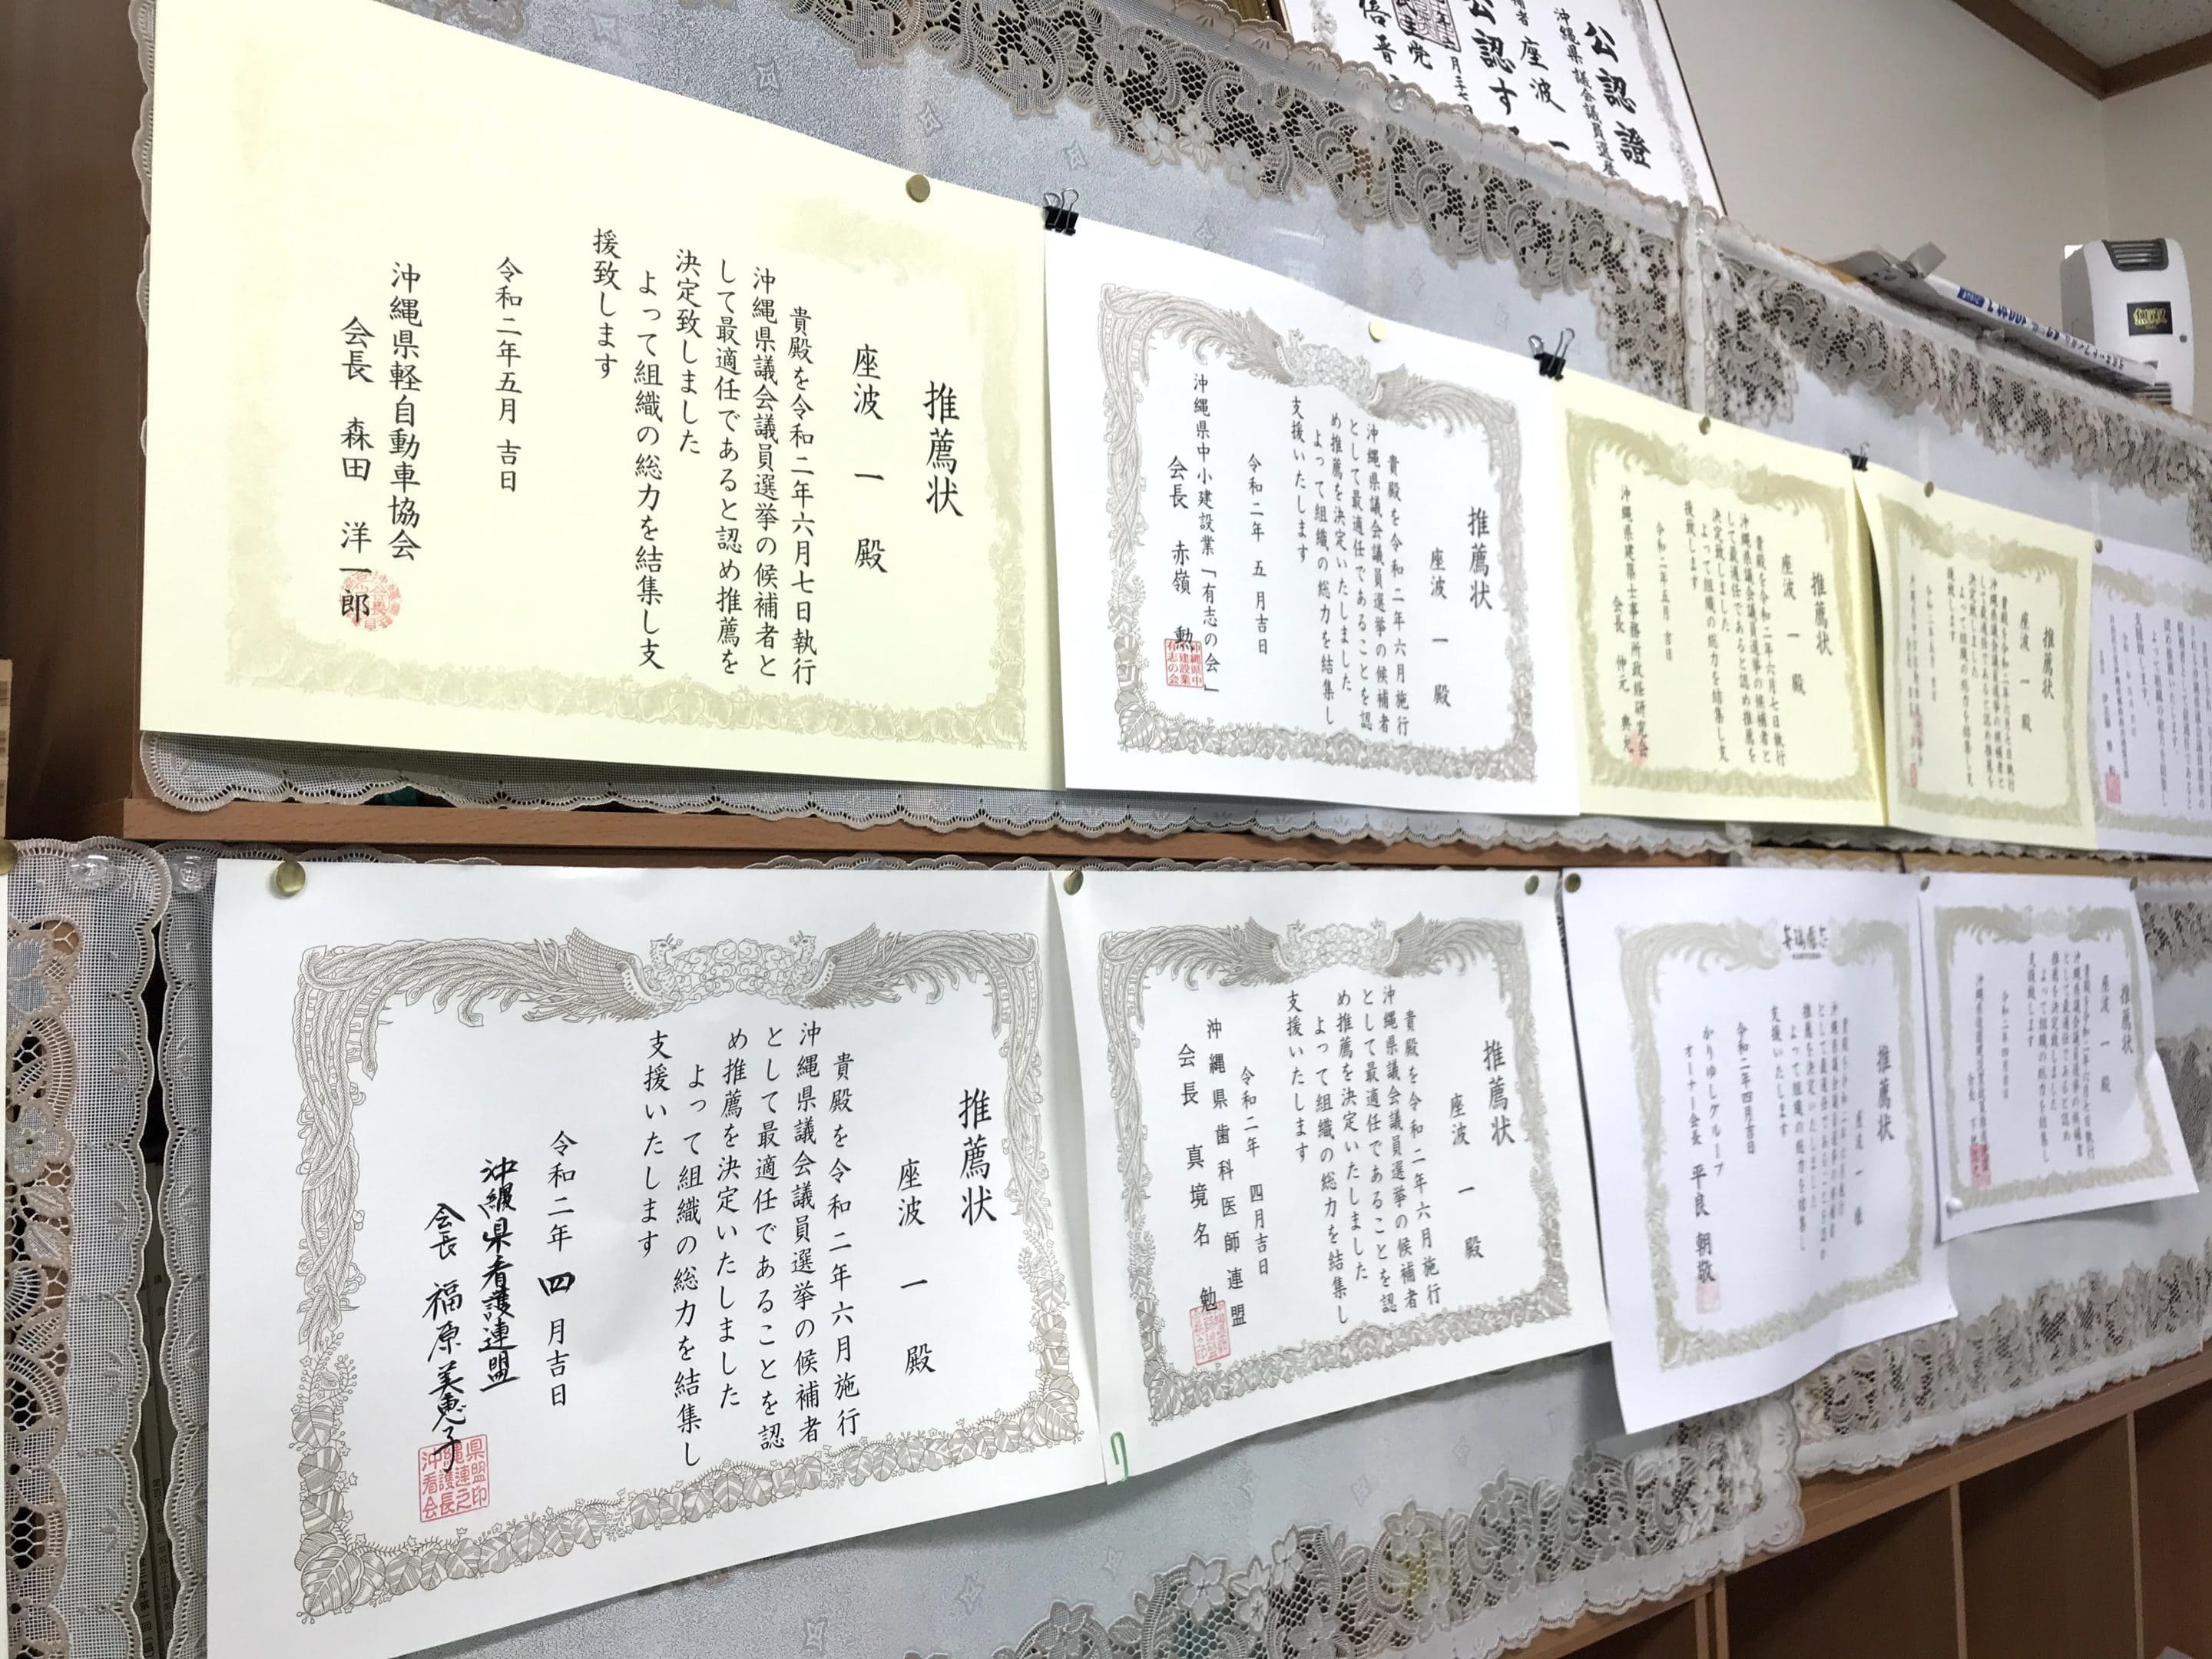 公認證
沖縄県議会議員選挙
座波一
公認す
推薦状
座波 一 殿
貴殿を令和二年六月七日執行
沖縄県議会議員選挙の候補者と
して最適任であると認め推薦を
決定致しました
よって組織の総力を結集し支
援致します
令和二年五月 吉日
沖縄県軽自動車協会
会長 森田 洋一郎
推薦状
座波 一 殿
貴殿を令和二年六月施行
沖縄県議会議員選挙の候補者
として最適任であることを認
め推薦を決定いたしました
よって組織の総力を結集し
支援いたします
令和二年 五 月吉日
沖縄県中小建設業「有志の会」
会長 赤嶺 勲
推薦状
座波 一 殿
貴殿を令和二年六月七日執行
沖縄県議会議員選挙の候補者と
して最適任であると認め推薦を
決定致しました
よって組織の総力を結集し支
援致します
令和二年五月 吉日
沖縄県建築士事務所政経研究会
会長 仲元 典允
推薦状
座波 一 殿
貴殿を令和二年六月七日執行
沖縄県議会議員選挙の候補者と
して最適任であると認め推薦を
決定致しました
よって組織の総力を結集し支
援致します
推薦状
座波 一 殿
貴殿を令和二年六月施行
沖縄県議会議員選挙の候補者
として最適任であることを認
め推薦を決定いたしました
よって組織の総力を結集し
支援いたします
令和二年 四 月吉日
沖縄県看護連盟
会長 福原美恵子
推薦状
座波 一 殿
貴殿を令和二年六月施行
沖縄県議会議員選挙の候補者
として最適任であることを認
め推薦を決定いたしました
よって組織の総力を結集し
支援いたします
令和二年 四月吉日
沖縄県歯科医師連盟
会長 真境名 勉
推薦状
座波 一 様
推薦を決定いたしました
よって組織の総力を結集し
支援いたします
令和二年四月吉日
かりゆしグループ
オーナー会長 平良 朝敬
推薦状
座波 一 殿
貴殿を令和二年六月七日執行
沖縄県議会議員選挙の候補者
として最適任であると認め
推薦を決定致しました
よって組織の総力を結集し
支援致します
令和二年四月吉日